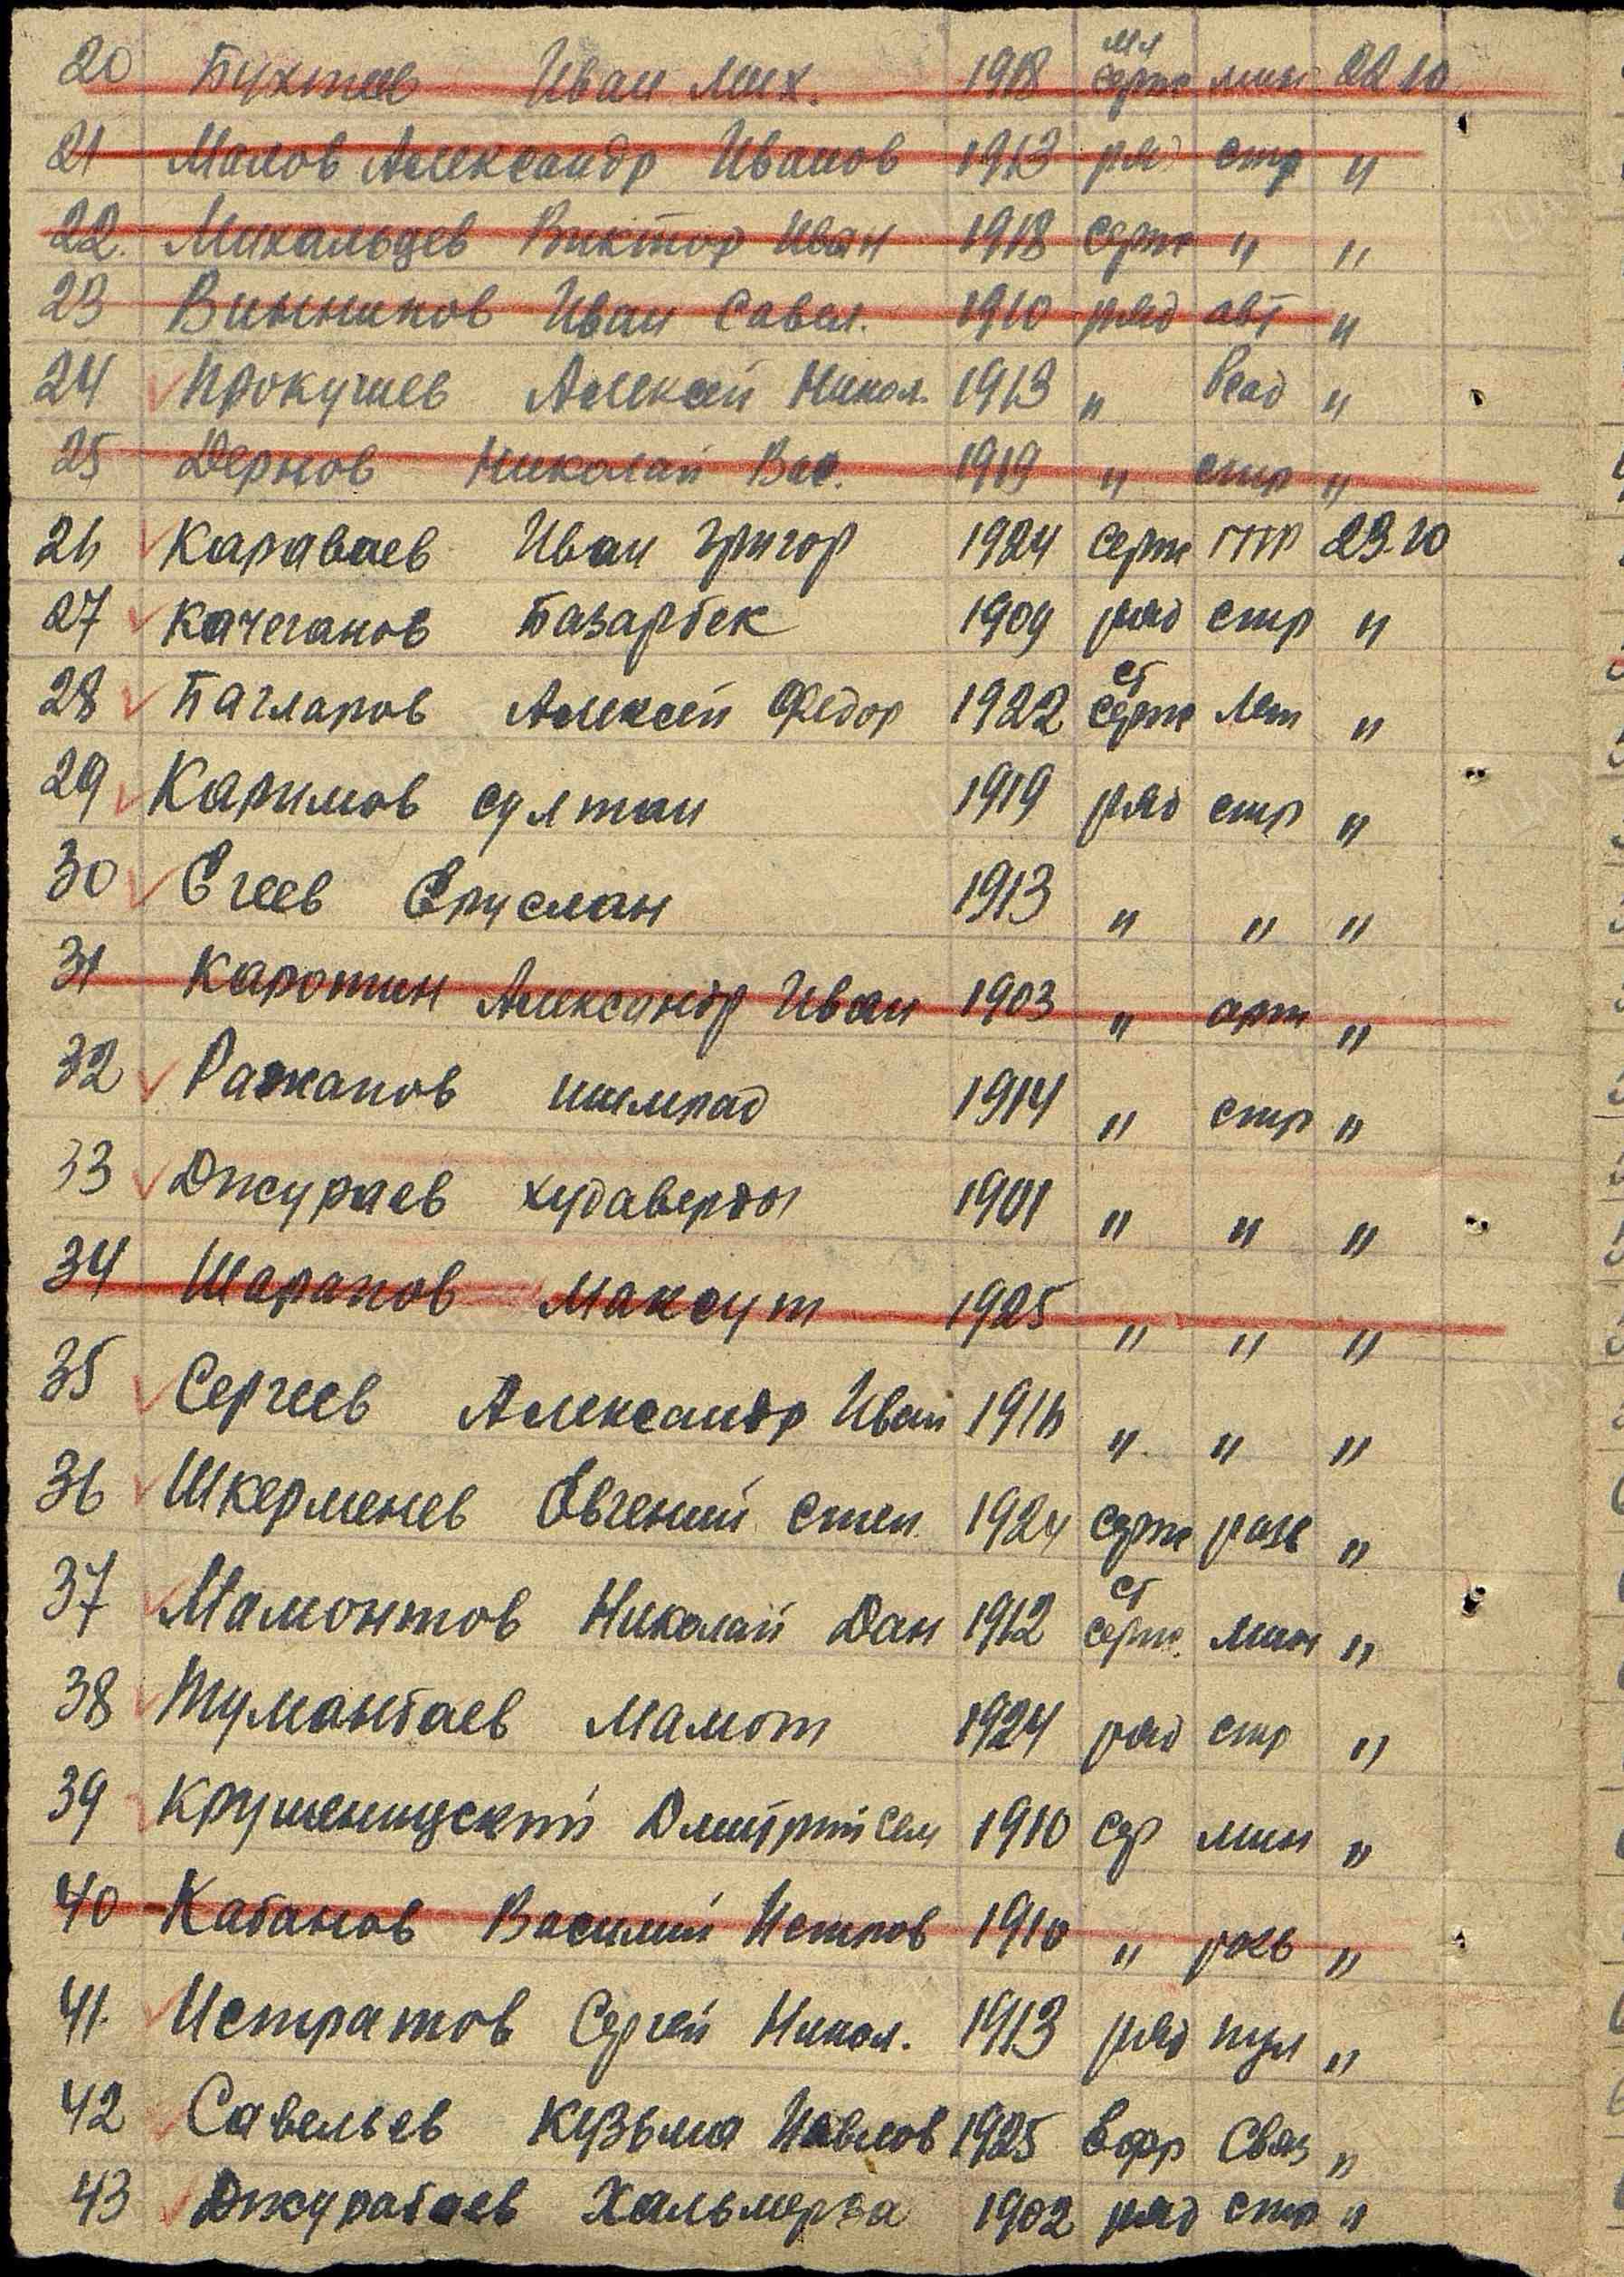 20 Бухтеев Иван Мих. 1918 мл серж мин 22 10
21 Малов Александр Иванов 1913 ряд стр "
22. Михальцев Виктор Иван 1918 серж " "
23 Винников Иван Савел. 1910 ряд авт "
24 Прокушев Алексей Никол. 1913 " "
25 Дернов Николай Вас. 1919 " стр "
26 Караваев Иван Григор 1924 серж ПТР 23.10
27 Качеганов Базарбек 1909 ряд стр "
28 Багларов Алексей Федор 1922 ст серж "
29 Каримов султан 1919 ряд стр "
30 Егеев Еруслан 1913 " " "
31 Каротин Александр Иван 1903 " арт "
32 Ражапов 1914 " стр "
33 Джураев худаверды 1901 " " "
34 Шарапов Максут 1925 " " "
35 Сергеев Александр Иван 1916 " " "
36 Шкерменев Евгений степ 1924 серж разв "
37 Мамонтов Николай Дан 1912 ст серж. мин "
38 Туманбаев Мамот 1924 ряд стр "
39 Крушеницский Дмитрий Сем 1910 сер мин "
40 Кабанов Василий Петров 1910 " разв "
41. Истратов Сергей Никол. 1913 ряд пул "
42 Савельев Кузьма Павлов 1925 ефр Связ "
43 Джурабаев Хальмерза 1902 ряд стр "